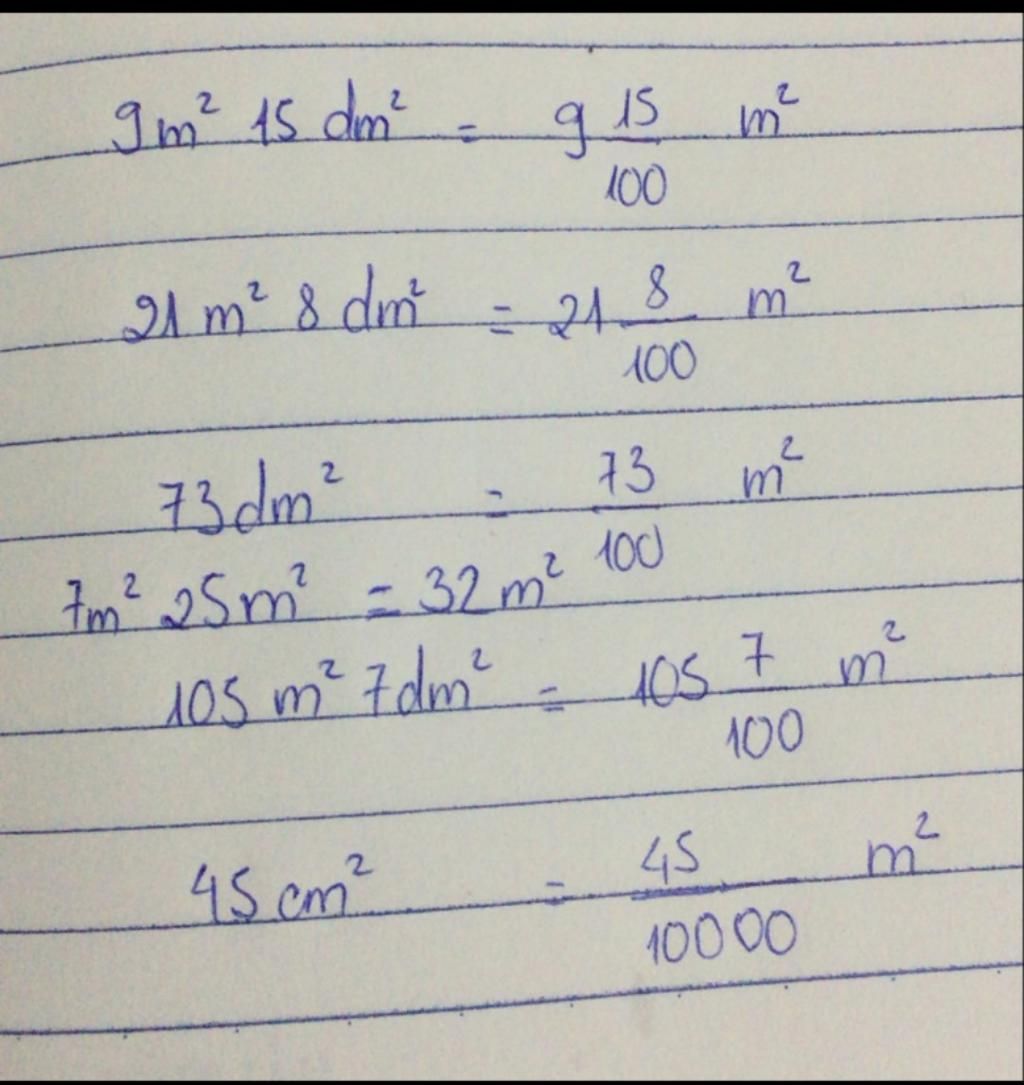 9m² 15 dm² = 9 15/100 m²
21 m² 8 dm² = 21 8/100 m²
73dm² = 73/100 m²
7m² 25m² = 32m²
105 m² 7dm² = 105 7/100 m²
45 cm² = 45/10000 m²